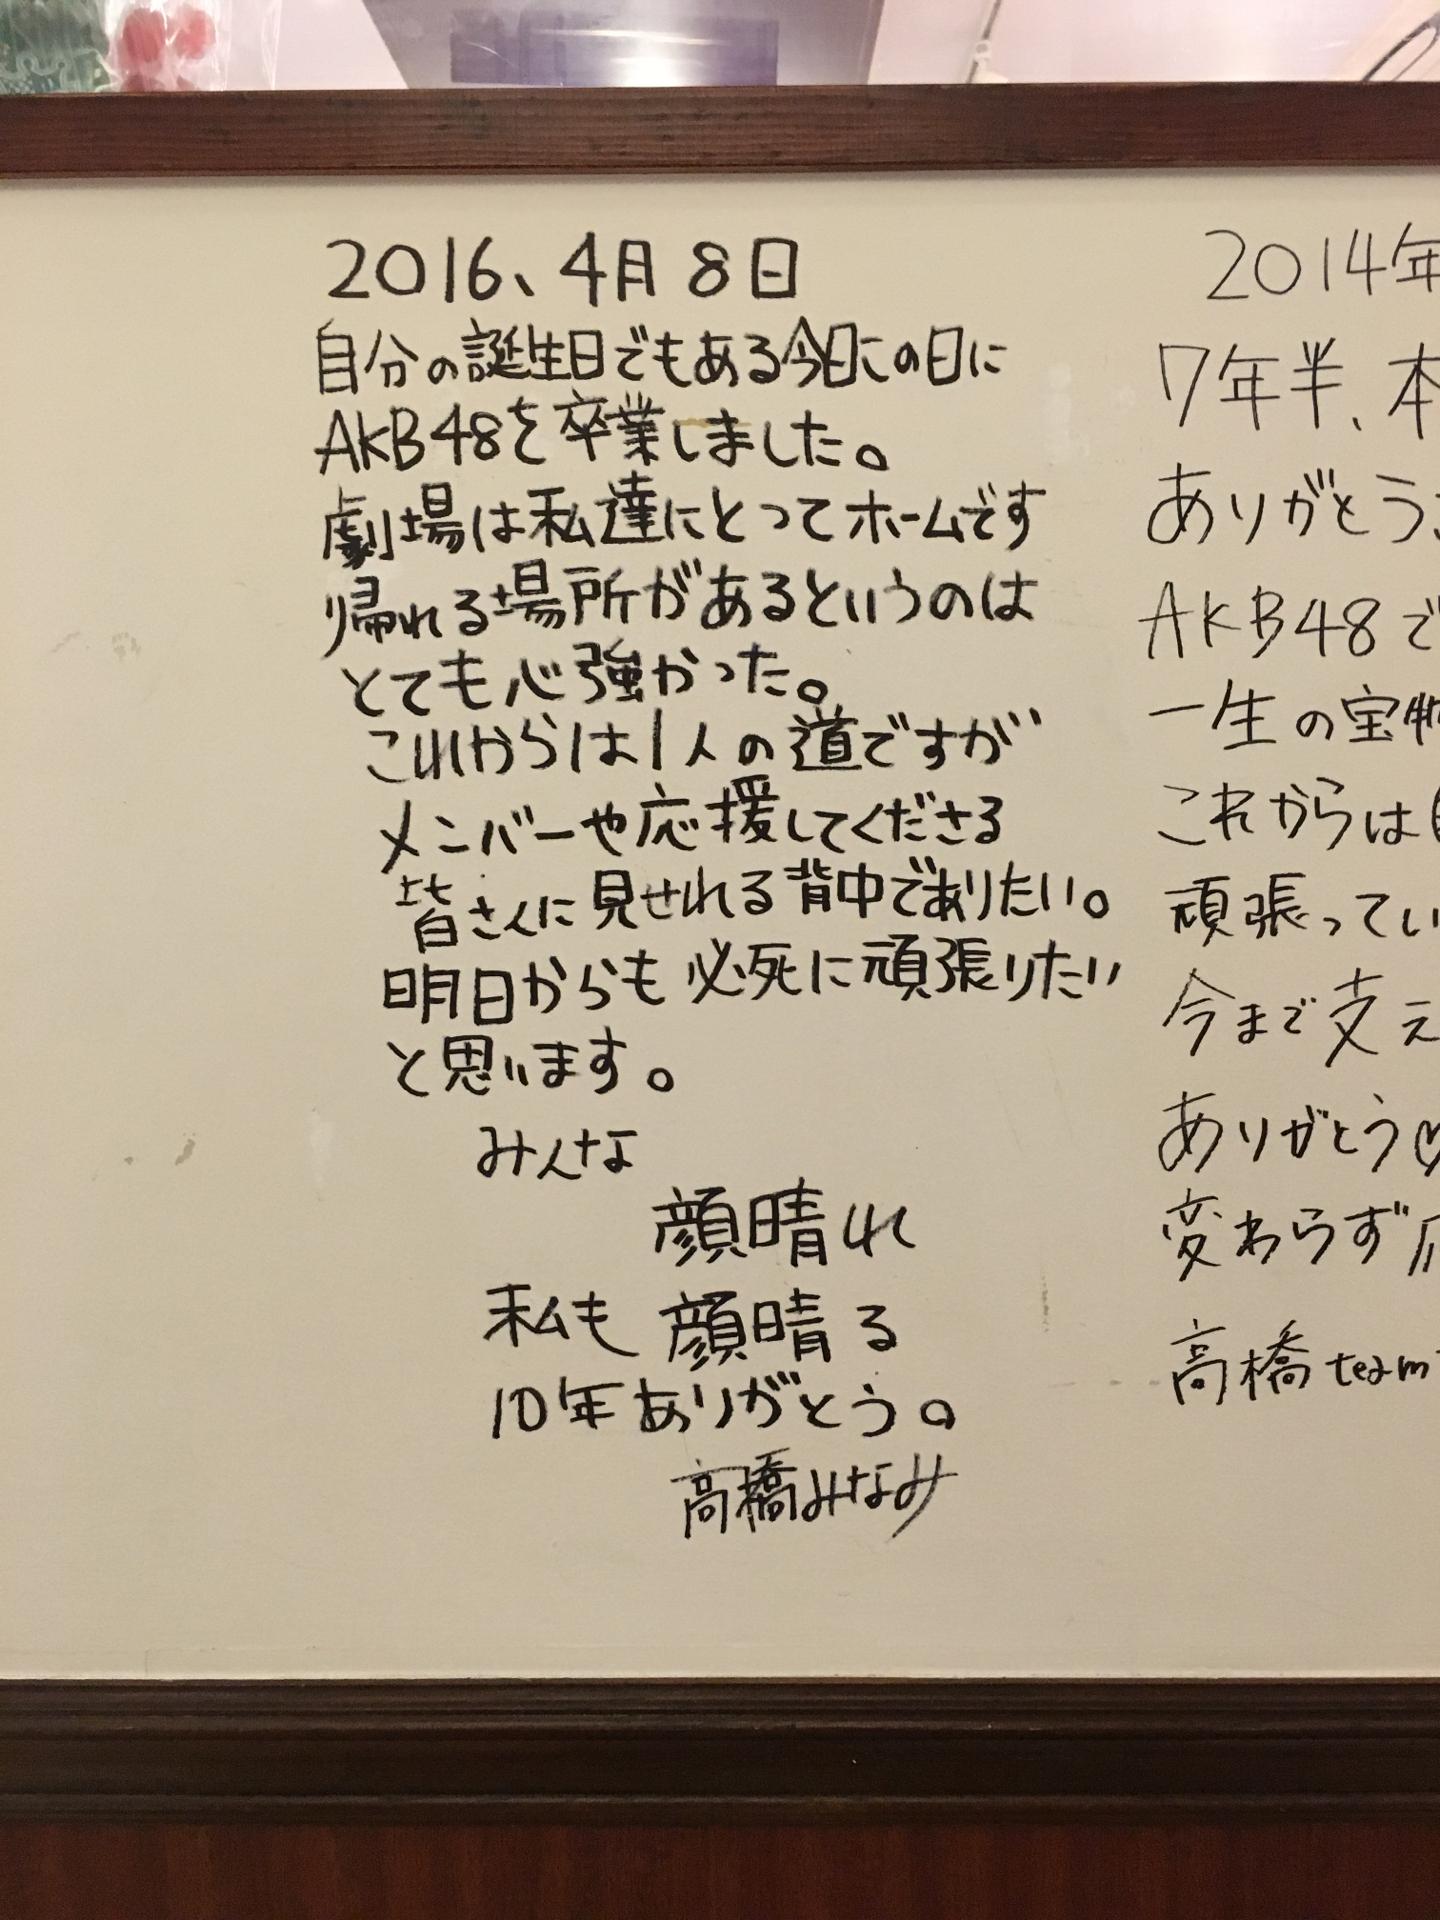 2016、4月8日
自分の誕生日でもある今日この日に
AKB48を卒業しました。
劇場は私達にとってホームです
帰れる場所があるというのは
とても心強かった。
これからは1人の道ですが
メンバーや応援してくださる
皆さんに見せれる背中でありたい。
明日からも必死に頑張りたい
と思います。
みんな
顔晴れ
私も顔晴る
10年ありがとう。
高橋みなみ
2014年
7年半、本
ありがとう
AKB48で
一生の宝物
これからは
頑張ってい
今まで支え
ありがとう♡
変わらず
高橋team